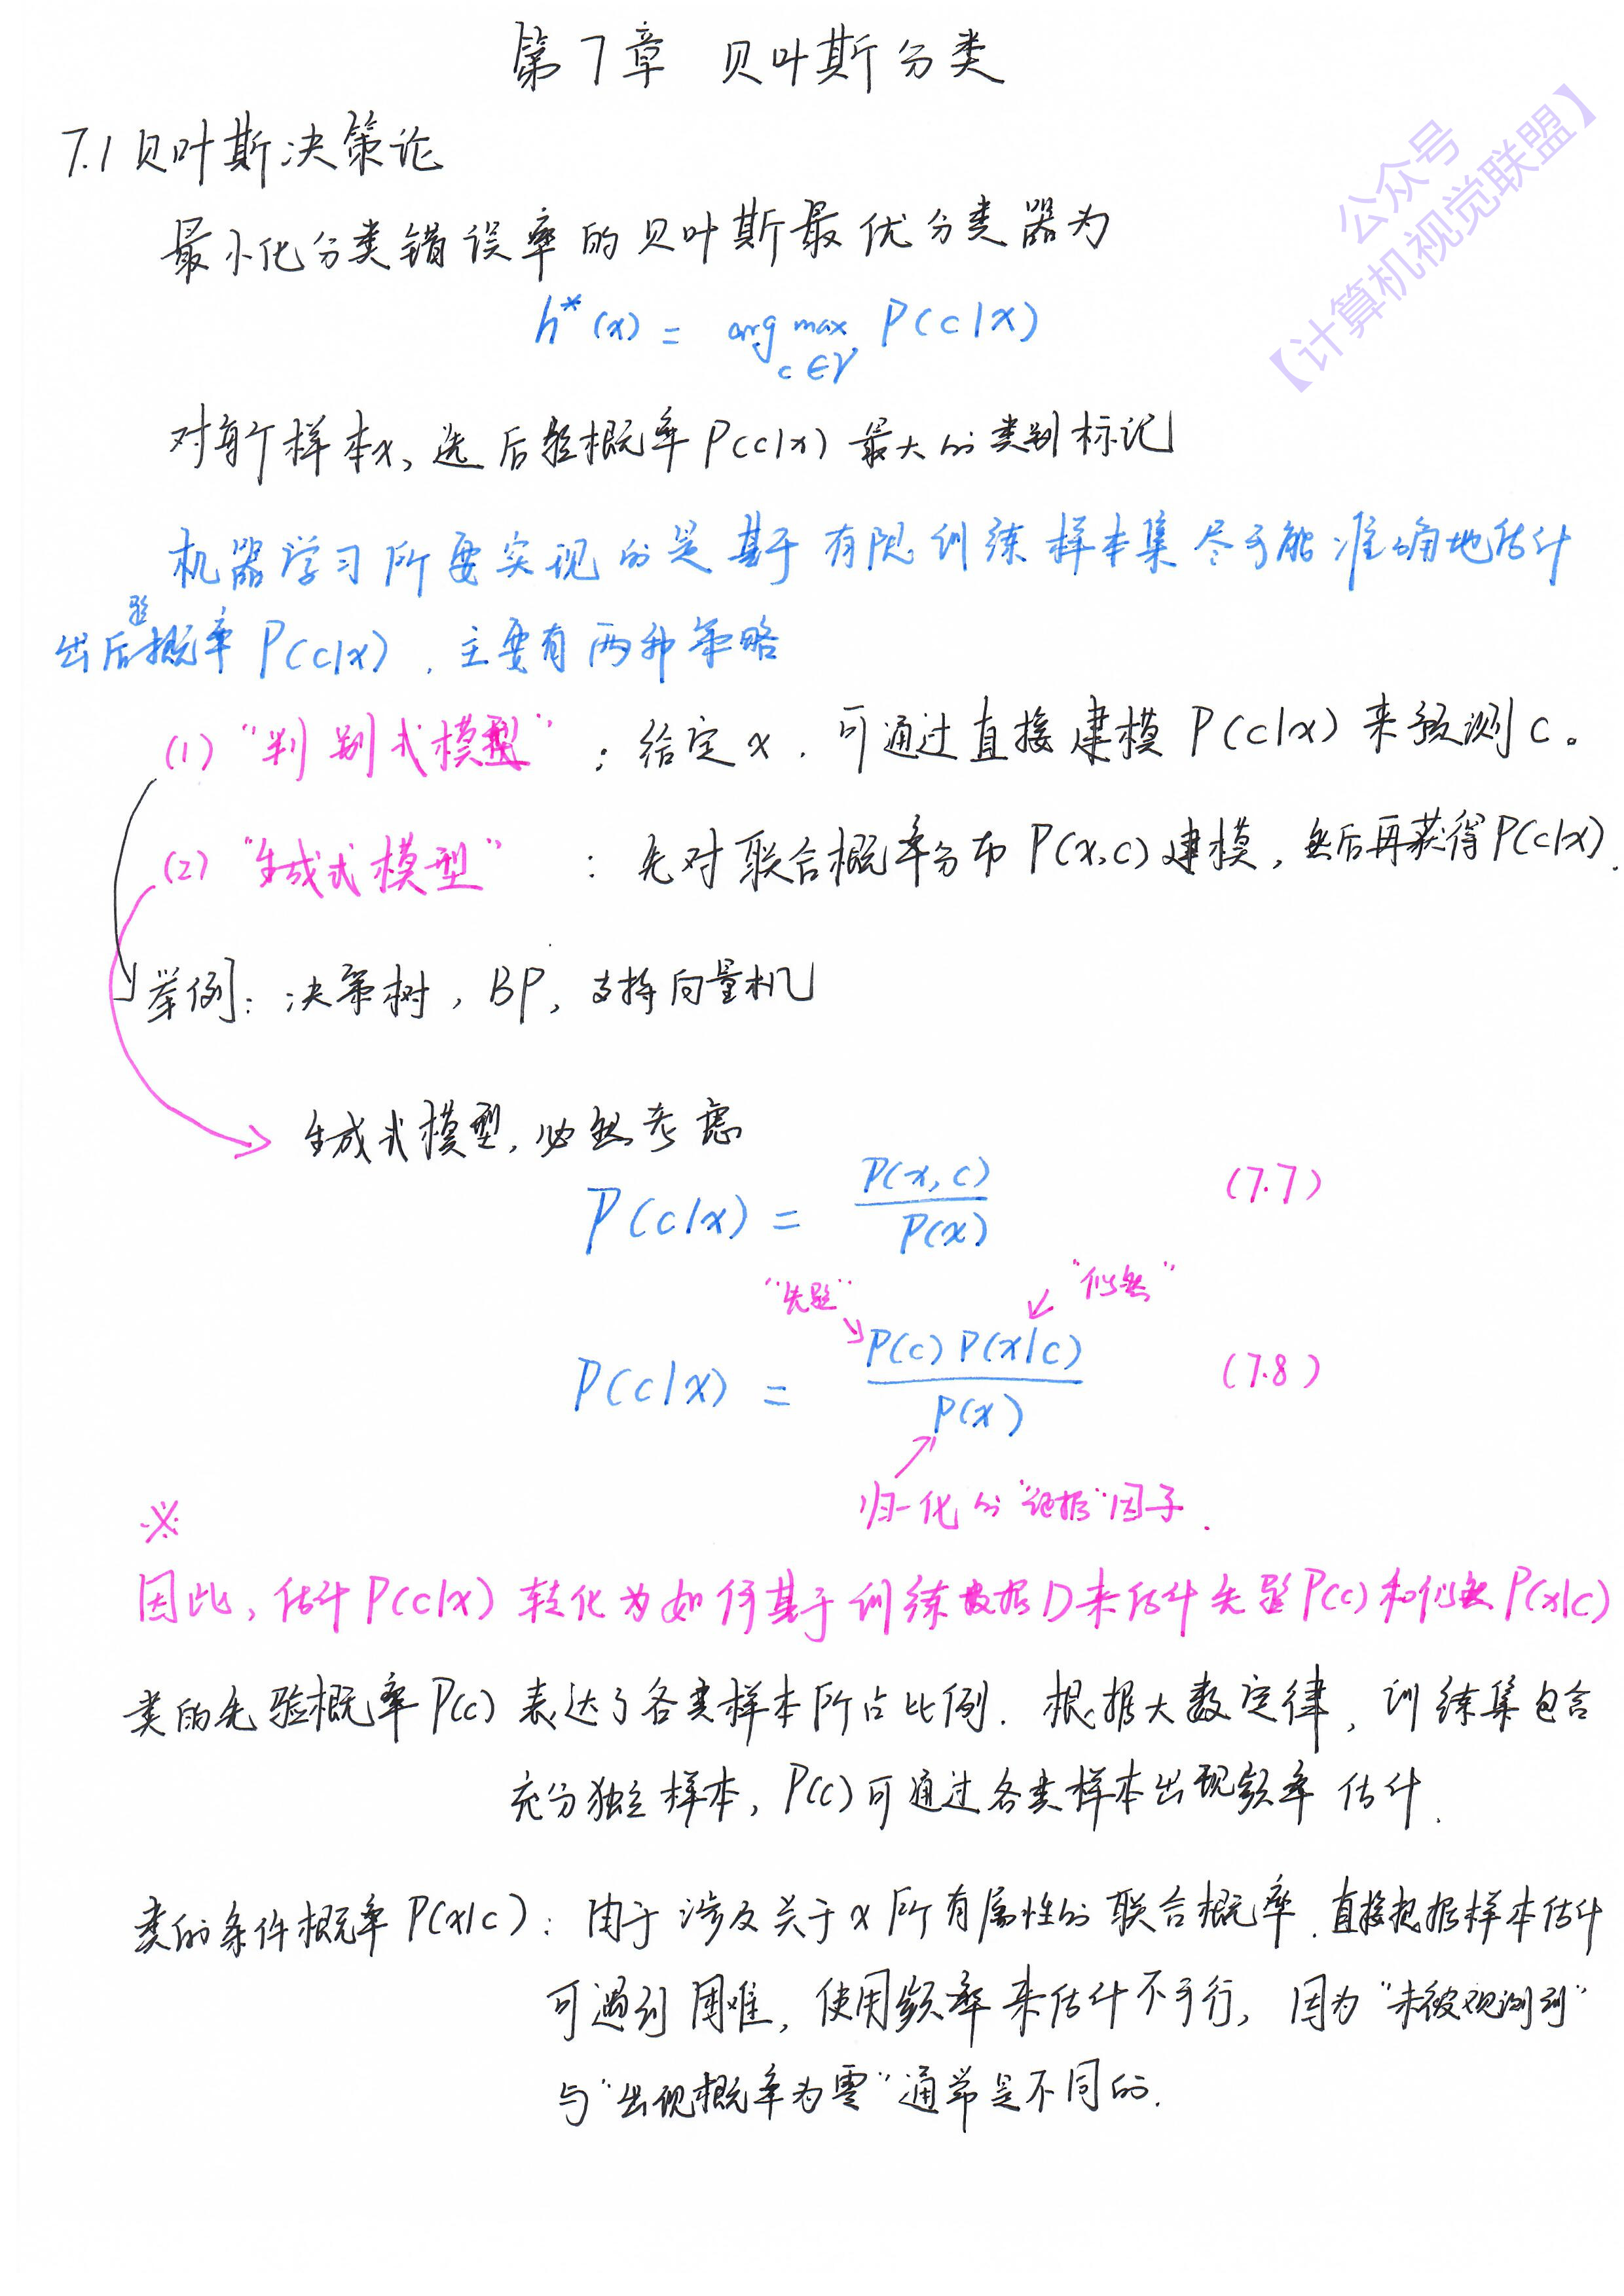 第7章 贝叶斯分类
公众号
【计算机视觉联盟】
7.1 贝叶斯决策论
最小化分类错误率的贝叶斯最优分类器为
h*(x) = arg max P(c|x)
c∈γ
对每个样本x, 选后验概率P(c|x)最大的类别标记
机器学习所要实现的是基于有限训练样本集尽可能准确地估计
出后验概率P(c|x), 主要有两种策略
(1) "判别式模型" : 给定x, 可通过直接建模P(c|x)来预测c。
(2) "生成式模型" : 先对联合概率分布P(x,c)建模, 然后再获得P(c|x).
举例: 决策树, BP, 支持向量机
生成式模型, 必然考虑
P(c|x) = P(x,c) / P(x) (7.7)
"先验" "似然"
P(c|x) = P(c) P(x|c) / P(x) (7.8)
归一化的"证据"因子.
※
因此, 估计P(c|x)转化为如何基于训练数据D来估计先验P(c)和似然P(x|c)
类的先验概率P(c)表达了各类样本所占比例. 根据大数定律, 训练集包含
充分独立样本, P(c)可通过各类样本出现频率估计.
类的条件概率P(x|c): 由于涉及关于x所有属性的联合概率. 直接根据样本估计
可遇到困难, 使用频率来估计不可行, 因为"未被观测到"
与"出现概率为零"通常是不同的.